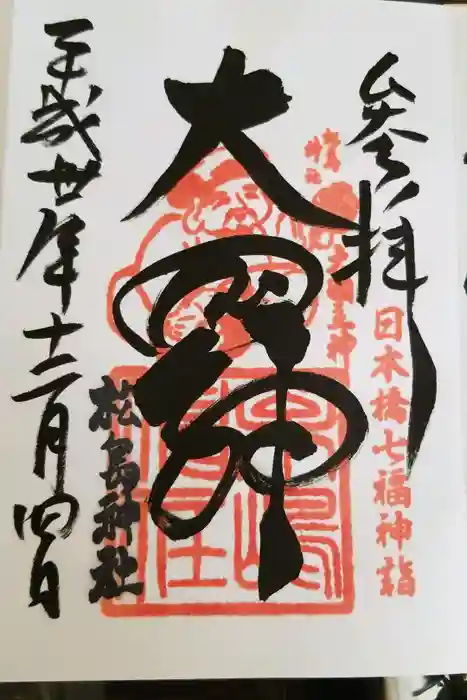 参拝
日本橋七福神詣
大国神
松島神社
平成丗年十二月四日